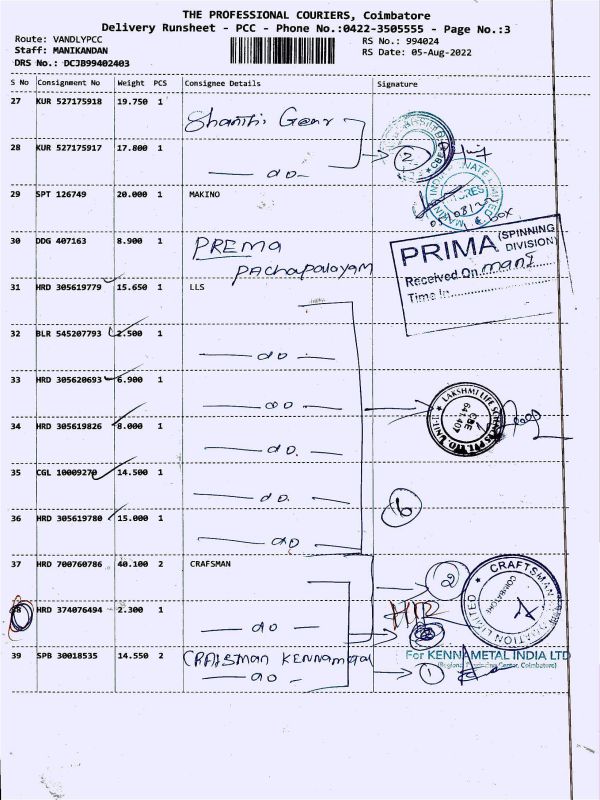 THE PROFESSIONAL COURIERS, Coimbatore
Delivery Runsheet - PCC - Phone No.:0422-3505555 - Page No.:3
Route: VANDLYPCC
RS No.: 994024
Staff: MANIKANDAN
RS Date: 05-Aug-2022
DRS No.: DCJB99402403
S No Consignment No Weight PCS Consignee Details Signature
27 KUR 527175918 19.750 1 Shanthi Gear
28 KUR 527175917 17.800 1 do 2
29 SPT 126749 20.000 1 MAKINO
30 DDG 407163 8.900 1 PREMA
PAChapalayam
PRIMA (SPINNING DIVISION)
Received On mani
Time In
31 HRD 305619779 15.650 1 LLS
32 BLR 545207793 2.500 1 do
33 HRD 305620693 6.900 1 do
LAKSHMI LIFE SCIENCES PVT LTD UNIT-II
CBE
641 407
34 HRD 305619826 8.000 1 do
35 CGL 10009270 14.500 1 do
36 HRD 305619780 15.000 1 do
6
37 HRD 700760786 40.100 2 CRAFSMAN
2
CRAFTSMAN AUTOMATION LIMITED
COIMBATORE
38 HRD 374076494 2.300 1 do
39 SPB 30018535 14.550 2 CRAFSMAN KENNAMETAL
do 1
For KENNAMETAL INDIA LTD